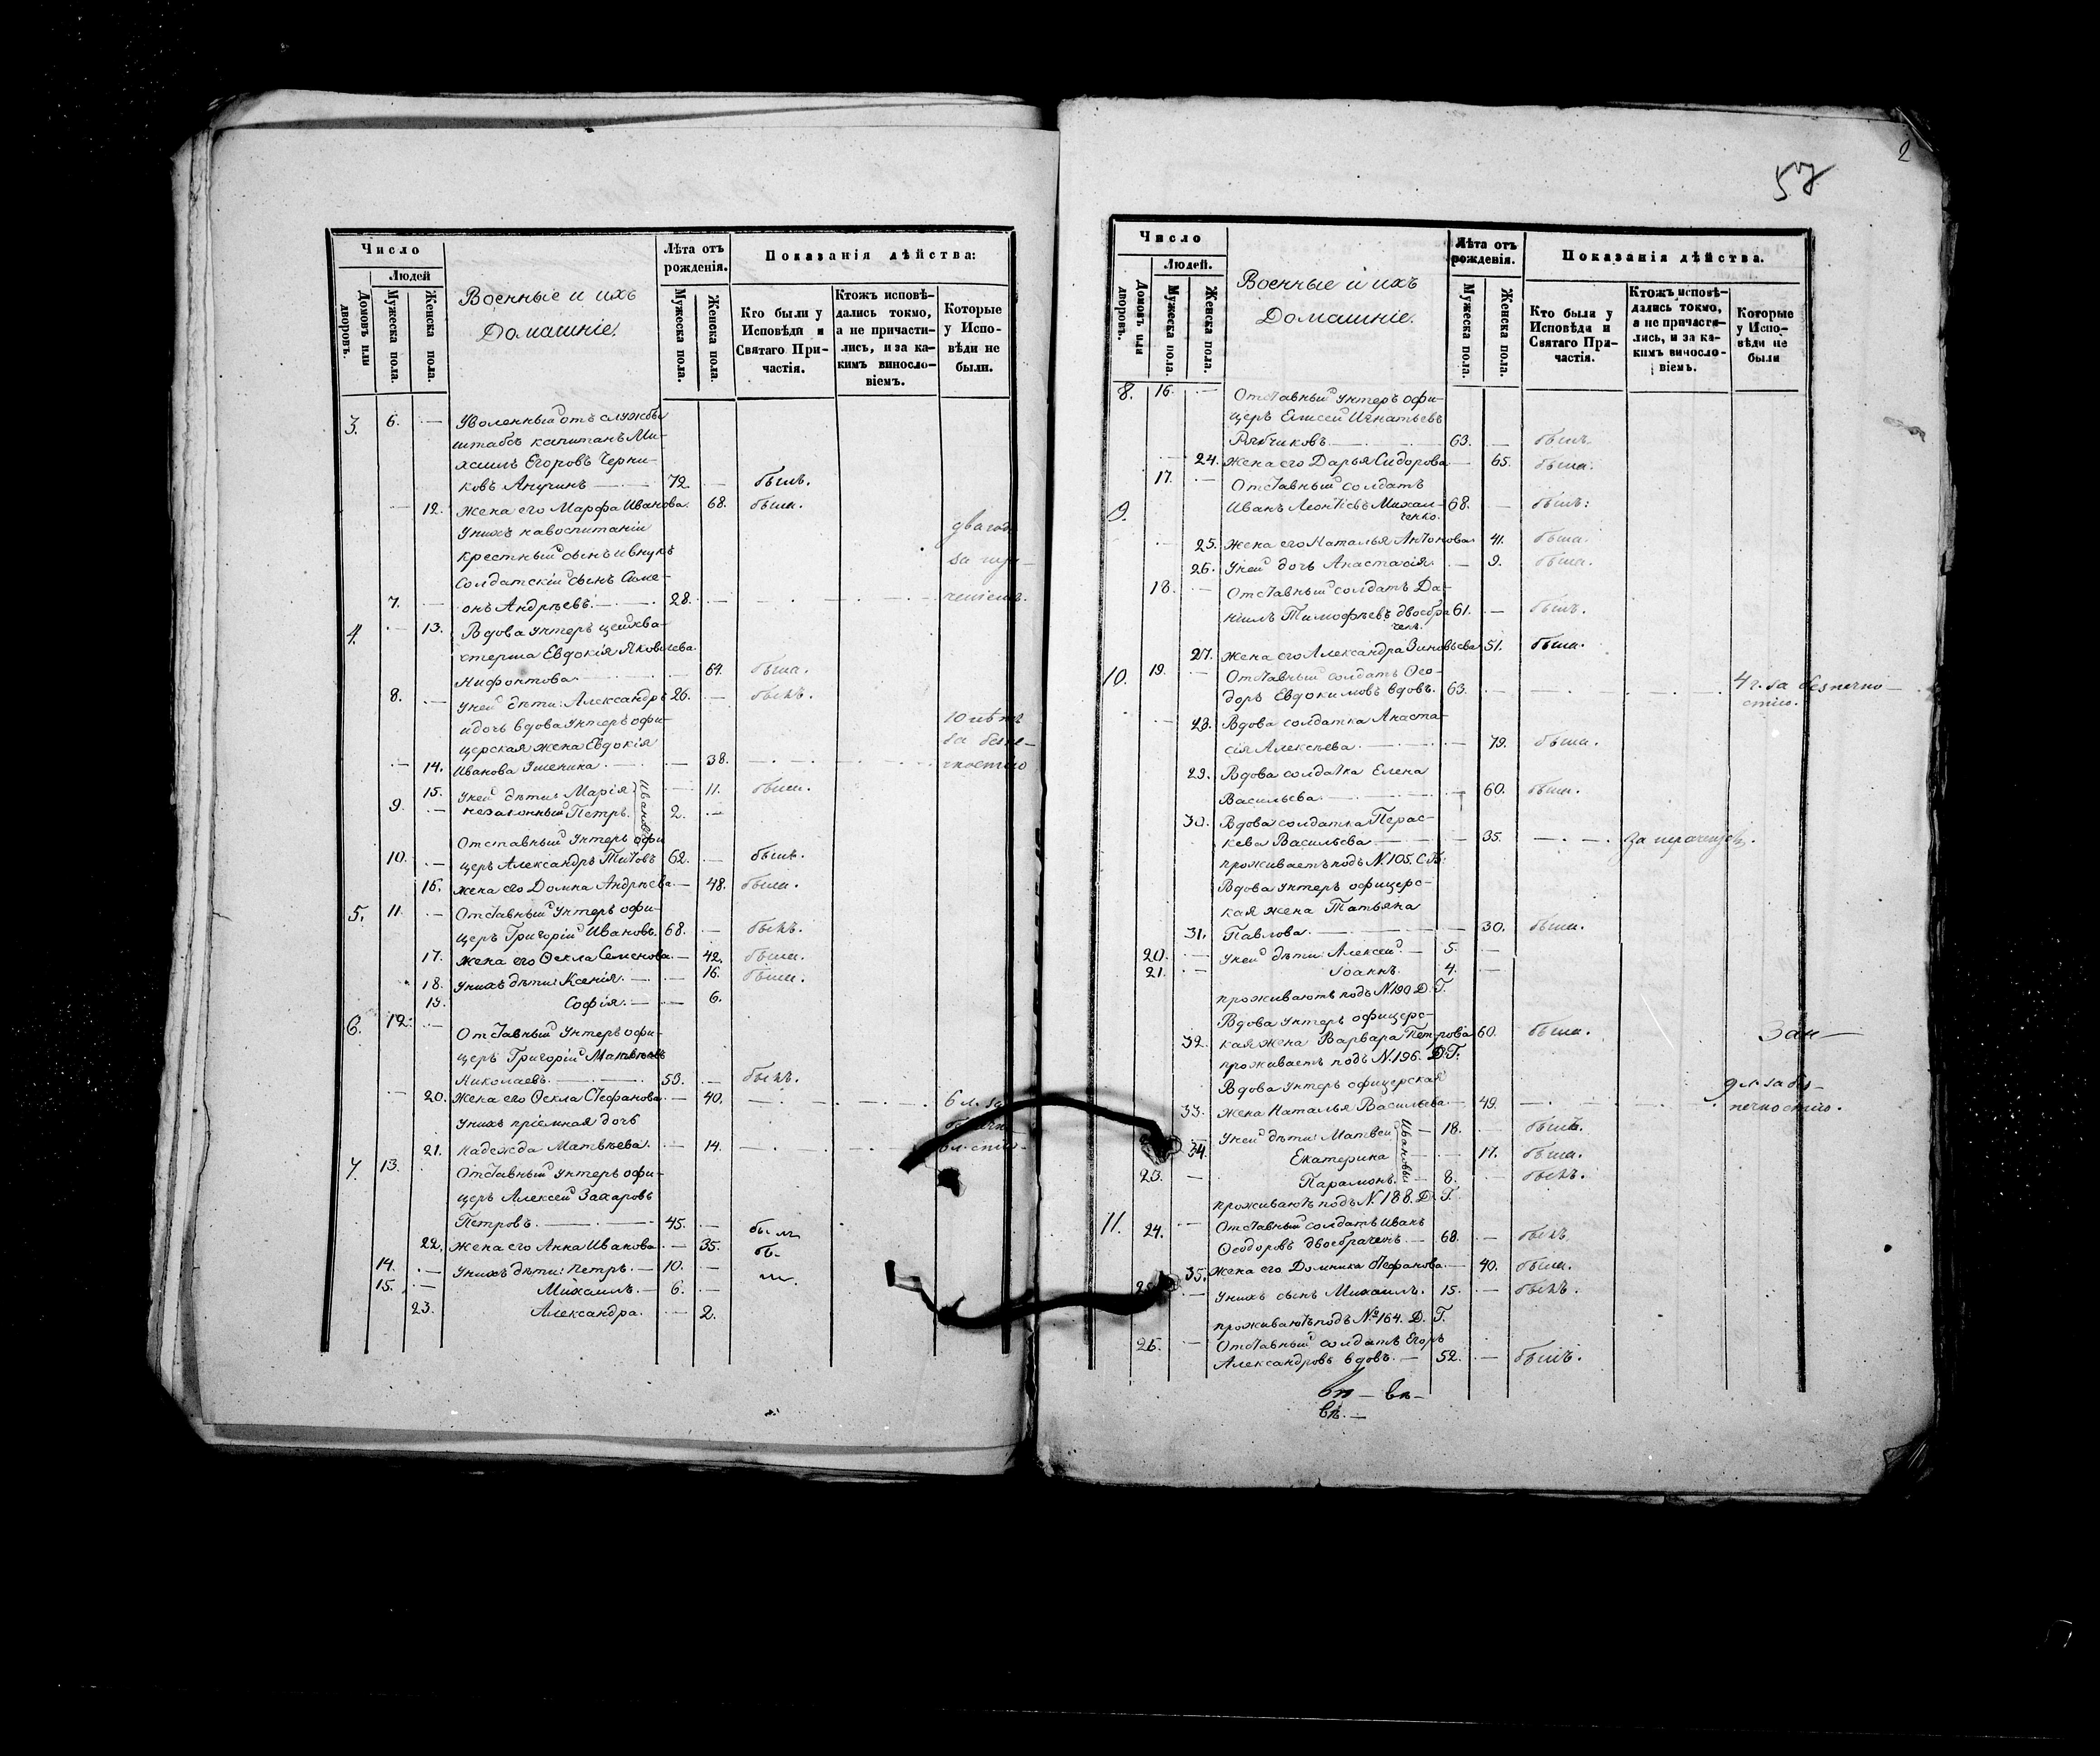 Число
Людей
Домовъ или дворовъ.
Мужеска пола.
Женска пола.
Военные и ихъ
Домашніе.
Лѣта отъ рожденія.
Мужеска пола.
Женска пола.
Показанія дѣйства:
Кто были у Исповѣди и Святаго Причастія.
Ктожъ исповѣдались токмо, а не причастились, и за какимъ винословіемъ.
Которые у Исповѣди не были.
3. 6. — Уволенный отъ службы
штабсъ капитанъ Ми-
хаилъ Егоровъ Черни-
ковъ Аничинъ 72. — былъ.
— 12. жена его Марфа Иванова. 68. была.
У нихъ на воспитаніи
крестный сынъ и внукъ
солдатскій сынъ Симе-
7. — онъ Андреевъ. 28. —
4. — 13. Вдова унтеръ цейхва-
хтерша Евдокія Яковлева
Нифонтова — 64. была.
8. — У ней дѣти: Александръ 26. — былъ.
и дочь вдова унтеръ офи-
церская жена Евдокія
— 14. Иванова — 38. 10 лѣтъ за безпе-чностію
15. У ней дѣти: Марія — 11. была.
9. — незаконный Петръ. 2. —
Ивановы
Отставный унтеръ офи-
10. — церъ Александръ Титовъ 62. — былъ.
16. жена его Домна Андреева — 48. была.
5. 11. — Отставный унтеръ офи-
церъ Григорій Ивановъ. 68. — былъ.
17. жена его Ѳекла Семенова — 42. была.
18. У нихъ дѣти: Ксенія. — 16. была.
19. Софія. — 6.
6. 12. — Отставный унтеръ офи-
церъ Григорій Матвѣевъ
Николаевъ. 53. — былъ.
— 20. жена его Ѳекла Стефанова — 40. 6 л. за
У нихъ пріемная дочь
21. Надежда Матвѣева. — 14.
7. 13. Отставный унтеръ офи-
церъ Алексей Захаровъ
Петровъ. 45. — былъ
22. жена его Анна Иванова. — 35. бы-
14. — У нихъ дѣти: Петръ. — 10. —
15. — Михаилъ. — 6. —
23. Александра. — 2.
2
57
Число
Людей.
Домовъ или дворовъ.
Мужеска пола.
Женска пола.
Военные и ихъ
Домашніе.
Лѣта отъ рожденія.
Мужеска пола.
Женска пола.
Показанія дѣйства.
Кто были у Исповѣди и Святаго Причастія.
Ктожъ исповѣдались токмо, а не причастились, и за какимъ винословіемъ.
Которые у Исповѣди не были
8. 16. — Отставный унтеръ офи-
церъ Елисей Игнатьевъ
Рябчиковъ 63. — былъ.
— 24. жена его Дарья Сидорова — 65. была.
17. — Отставный солдатъ
9. Иванъ Леонтіевъ Михал-ченко. 68. — былъ:
— 25. жена его Наталья Антонова 41. была.
26. У ней дочь Анастасія. — 9. была.
18. — Отставный солдатъ Да-
ніилъ Тимофѣевъ двоебраченъ. 61. — былъ.
27. жена его Александра Зиновьева 51. была.
10. 19. — Отставный солдатъ Ѳео-
доръ Евдокимовъ вдовъ. 63. — 4 г. за безпечно-стію.
— 28. Вдова солдатка Анаста-
сія Алексѣева. — 79. была.
29. Вдова солдатка Елена
Васильева. — 60. была.
30. Вдова солдатка Перас-
кева Васильева — 35.
проживаетъ подъ N. 105. С.Б.
Вдова унтеръ офицерс-
кая жена Татьяна
31. Павлова. — 30. была.
20. — У ней дѣти: Алексей. — 5. —
21. — Іоаннъ. 4. —
проживаютъ подъ N. 190 Д. Г.
Вдова унтеръ офицерс-
32. кая жена Варвара Петрова 60. была.
проживаетъ подъ N. 196. Д. Г.
Вдова унтеръ офицерская
33. жена Наталья Васильева — 49. 9 л. за без-печностію.
У ней дѣти: Матвей — 18. — былъ.
34. Екатерина — 17. была.
23. — Парамонъ. — 8. — былъ.
Ивановы
проживаютъ подъ N. 188. Д. Г.
11. 24. — Отставный солдатъ Иванъ
Ѳеодоровъ двоебраченъ — 68. — былъ.
35. жена его Домника Стефанова — 40. была.
— У нихъ сынъ Михаилъ. 15. — былъ.
проживаютъ подъ № 164. Д. Г.
26. — Отставный солдатъ Егоръ
Александровъ вдовъ. — 52. — былъ.